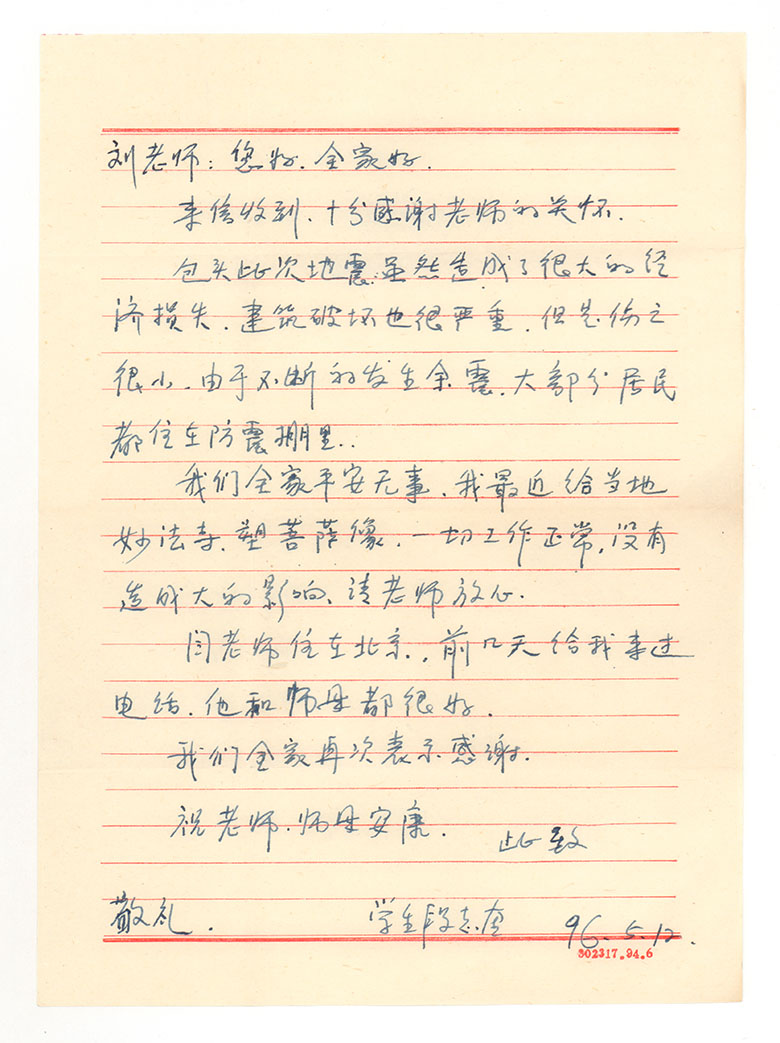 刘老师：您好．全家好．
来信收到．十分感谢老师的关怀．
包头此次地震虽然造成了很大的经
济损失．建筑破坏也很严重．但是伤亡
很小．由于不断的发生余震．大部分居民
都住在防震棚里．．
我们全家平安无事．我最近给当地
妙法寺．塑菩萨像．一切工作正常，没有
造成大的影响．请老师放心．
闫老师住在北京．，前几天给我来过
电话．他和师母都很好．
我们全家再次表示感谢．
祝老师．师母安康．
此致
敬礼．
学生段志
96.5.12.
302317.94.6